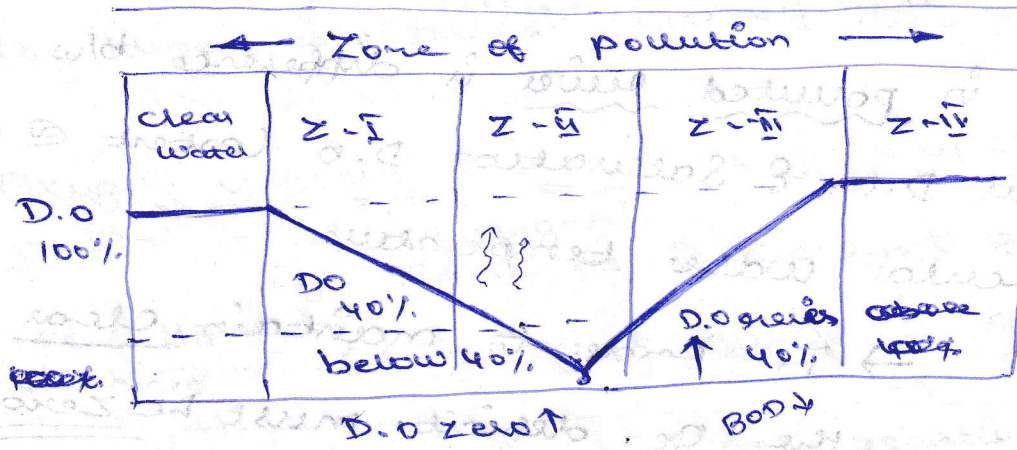 ← Zone of pollution →
clear
water
Z-I
Z-II
Z-III
Z-IV
D.O
100%
DO
40%
below 40%
D.O
↑ 40%
above
D.O zero ↑
BOD ↓